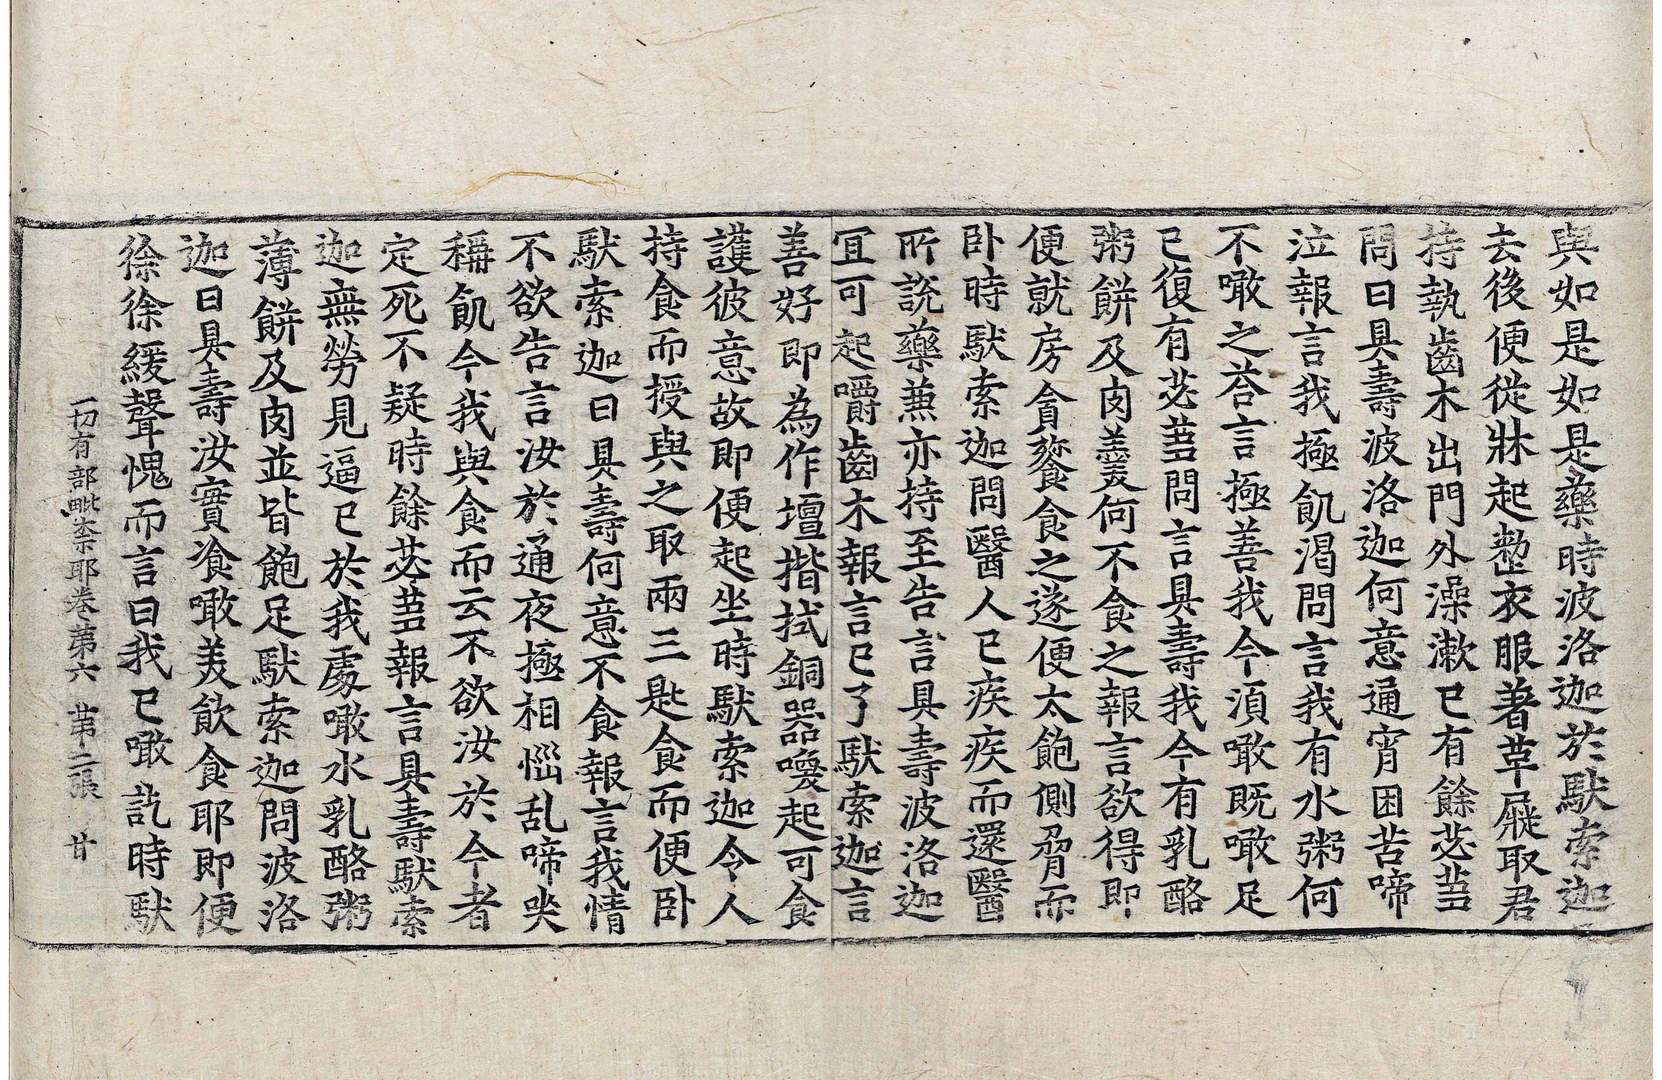 與如是如是藥時波洛迦於馱索迦
去後便從牀起整衣服著草屣取君
持執齒木出門外澡漱已有餘苾芻
問曰具壽波洛迦何意通宵困苦啼
泣報言我極飢渴問言我有水粥何
不噉之荅言極善我今湏噉既噉足
已復有苾芻問言具壽我今有乳酪
粥餅及肉羹何不食之報言欲得即
便就房貪餮食之遂便太飽側脅而
卧時馱索迦問醫人已疾疾而還醫
所説藥兼亦持至告言具壽波洛迦
冝可起嚼齒木報言已了馱索迦言
善好即為作壇揩拭銅器喚起可食
護彼意故即便起坐時馱索迦令人
持食而授與之取兩三匙食而便卧
馱索迦曰具壽何意不食報言我情
不欲告言汝於通夜極相惱乱啼哭
稱飢今我與食而云不欲汝於今者
定死不疑時餘苾芻報言具壽馱索
迦無勞見逼已於我處噉水乳酪粥
薄餅及肉並皆飽足馱索迦問波洛
迦曰具壽汝實飡噉美飲食耶即便
徐徐緩聲愧而言曰我已噉訖時馱
一切有部毗柰耶卷第六 苐二張 廿